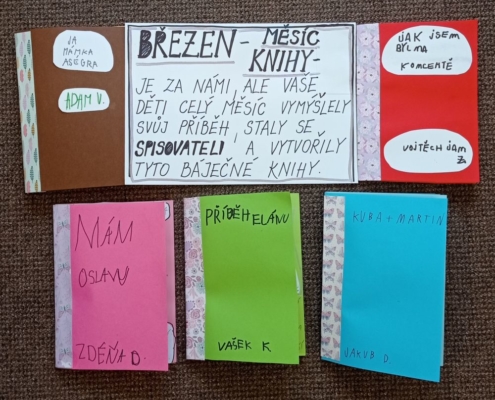 JA
MÁMKA
ASÉGRA
ADAM V.
BŘEZEN - MĚSÍC
KNIHY-
JE ZA NÁMI, ALE VAŠE
DĚTI CELÝ MĚSÍC VYMÝŠLELY
SVŮJ PŘÍBĚH, STALY SE
SPISOVATELI A VYTVOŘILY
TYTO BÁJEČNÉ KNIHY.
JAK JSEM
BYLNA
KONCERTĚ
VOJTĚCH JAM
MÁM
OSLAVU
ZDÉŇA D.
PŘÍBĚH ELÁNU
VAŠEK K
KUBA + MARTIN
JAKUB D